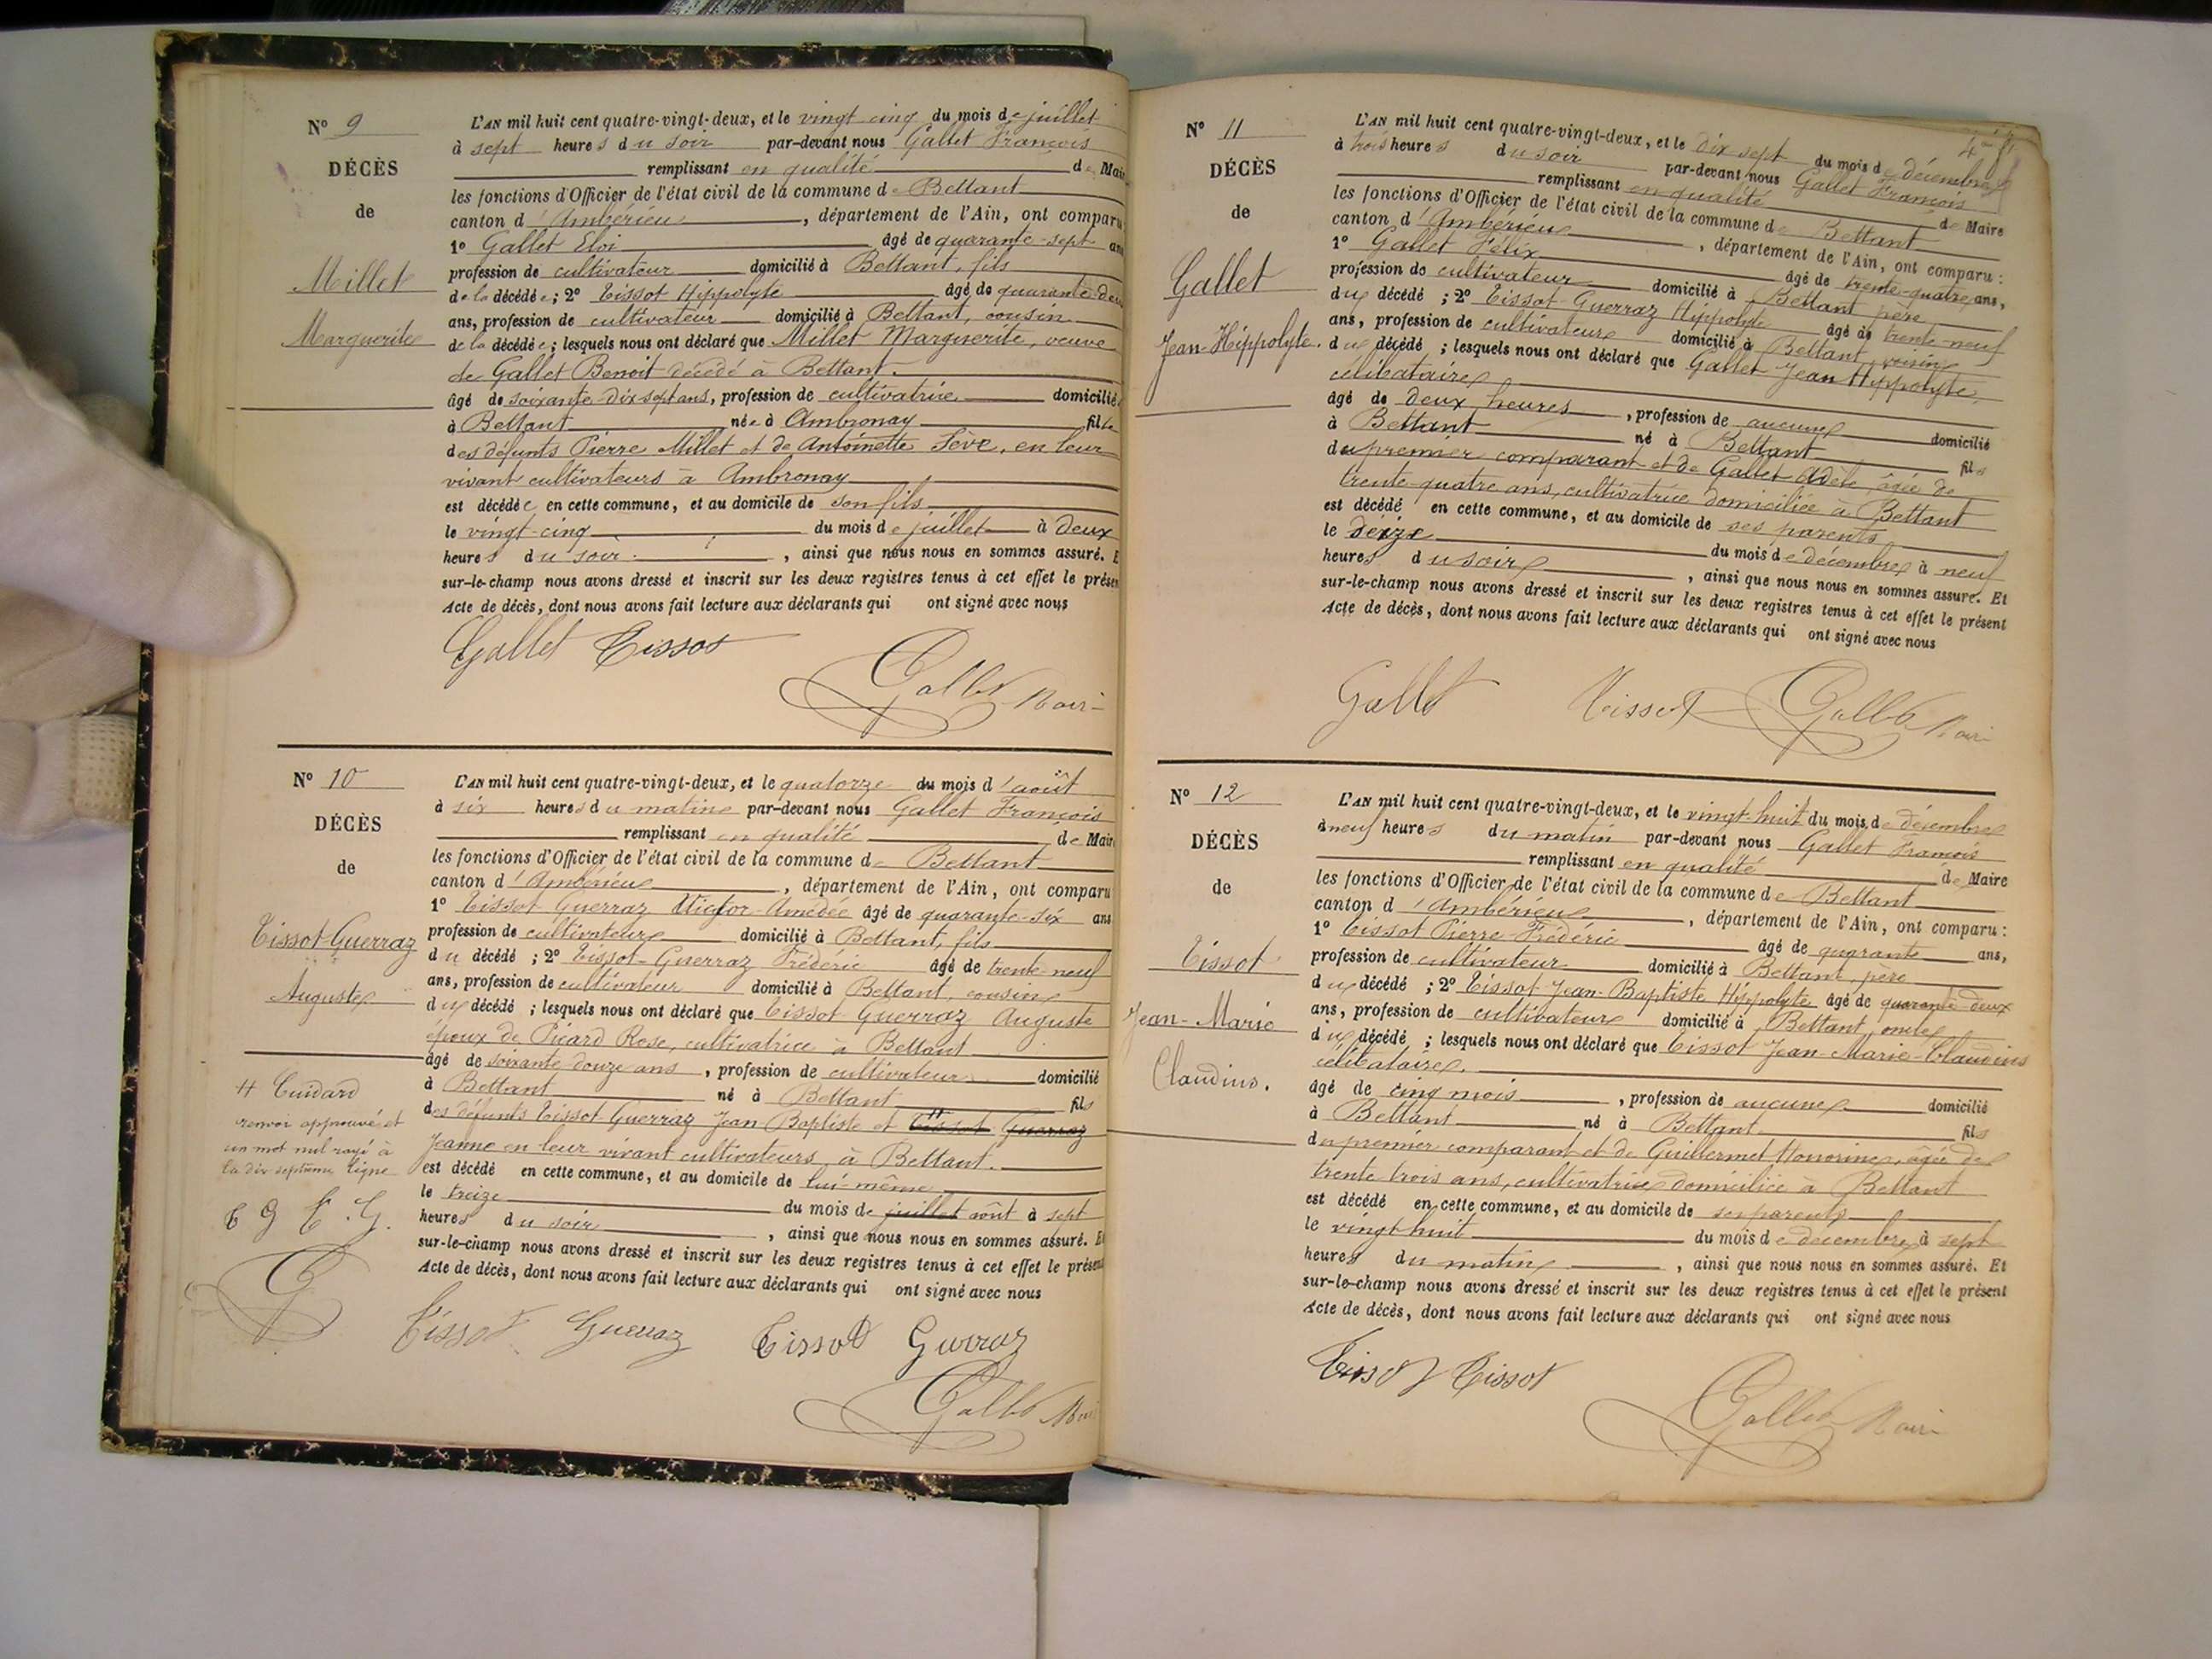 N° 9
DÉCÈS
de
Millet
Marguerite
L'AN mil huit cent quatre-vingt-deux, et le vingt cinq du mois de juillet
à sept heures du soir par-devant nous Gallet François
remplissant en qualité de Maire
les fonctions d'Officier de l'état civil de la commune de Bettant
canton d'Ambérieu, département de l'Ain, ont comparu
1° Gallet Eloi âgé de quarante-sept ans
profession de cultivateur domicilié à Bettant, fils
de la décédée ; 2° Tissot Hippolyte âgé de quarante-deux
ans, profession de cultivateur domicilié à Bettant, cousin
de la décédée ; lesquels nous ont déclaré que Millet Marguerite, veuve
de Gallet Benoit décédé à Bettant.
âgé de soixante-dix-sept ans, profession de cultivatrice domiciliée
à Bettant née à Ambronay fille
des défunts Pierre Millet et de Antoinette Sève, en leur
vivant cultivateurs à Ambronay
est décédée en cette commune, et au domicile de son fils
le vingt-cinq du mois de juillet à deux
heures du soir, ainsi que nous nous en sommes assuré. E
sur-le-champ nous avons dressé et inscrit sur les deux registres tenus à cet effet le présen
Acte de décès, dont nous avons fait lecture aux déclarants qui ont signé avec nous
Gallet Tissot
Gallet Maire
N° 10
DÉCÈS
de
Tissot-Guerraz
Auguste
L'AN mil huit cent quatre-vingt-deux, et le quatorze du mois d'août
à six heures du matin par-devant nous Gallet François
remplissant en qualité de Maire
les fonctions d'Officier de l'état civil de la commune de Bettant
canton d'Ambérieu, département de l'Ain, ont comparu
1° Tissot-Guerraz Victor-Amédée âgé de quarante-six ans
profession de cultivateur domicilié à Bettant, fils
du décédé ; 2° Tissot-Guerraz Frédéric âgé de trente-neuf
ans, profession de cultivateur domicilié à Bettant, cousin
du décédé ; lesquels nous ont déclaré que Tissot Guerraz Auguste
époux de Picard Rose, cultivatrice à Bettant
âgé de soixante douze ans, profession de cultivateur domicilié
à Bettant né à Bettant fils
des défunts Tissot Guerraz Jean Baptiste et Tissot Guerraz
Jeanne en leur vivant cultivateurs à Bettant.
est décédé en cette commune, et au domicile de lui-même
le treize du mois de juillet août à sept
heures du soir, ainsi que nous nous en sommes assuré. Et
sur-le-champ nous avons dressé et inscrit sur les deux registres tenus à cet effet le présent
Acte de décès, dont nous avons fait lecture aux déclarants qui ont signé avec nous
# Cuidard
renvoi approuvé et
un mot nul rayé à
la dix septième ligne
T G T G.
G
Tissot Guerraz Tissot Gurraz
Gallet Maire
N° 11
DÉCÈS
de
Gallet
Jean-Hippolyte.
L'AN mil huit cent quatre-vingt-deux, et le dix sept du mois de décembre
à trois heures du soir par-devant nous Gallet François
remplissant en qualité de Maire
les fonctions d'Officier de l'état civil de la commune de Bettant
canton d'Ambérieu, département de l'Ain, ont comparu :
1° Gallet Félix âgé de trente-quatre ans,
profession de cultivateur domicilié à Bettant père
du décédé ; 2° Tissot-Guerraz Hippolyte âgé de trente-neuf
ans, profession de cultivateur domicilié à Bettant, voisin
du décédé ; lesquels nous ont déclaré que Gallet Jean Hippolyte
célibataire
âgé de deux heures, profession de aucune domicilié
à Bettant né à Bettant fils
du premier comparant et de Gallet Adèle, âgée de
trente-quatre ans, cultivatrice domiciliée à Bettant
est décédé en cette commune, et au domicile de ses parents
le seize du mois de décembre à neuf
heures du soir, ainsi que nous nous en sommes assuré. Et
sur-le-champ nous avons dressé et inscrit sur les deux registres tenus à cet effet le présent
Acte de décès, dont nous avons fait lecture aux déclarants qui ont signé avec nous
Gallet Tissot Gallet Maire
N° 12
DÉCÈS
de
Tissot
Jean-Marie
Claudius.
L'AN mil huit cent quatre-vingt-deux, et le vingt-huit du mois de décembre
à neuf heures du matin par-devant nous Gallet François
remplissant en qualité de Maire
les fonctions d'Officier de l'état civil de la commune de Bettant
canton d'Ambérieu, département de l'Ain, ont comparu :
1° Tissot Pierre-Frédéric âgé de quarante ans,
profession de cultivateur domicilié à Bettant, père
du décédé ; 2° Tissot-Jean-Baptiste Hippolyte âgé de quarante deux
ans, profession de cultivateur domicilié à Bettant, oncle
du décédé ; lesquels nous ont déclaré que Tissot Jean-Marie-Claudius
célibataire.
âgé de cinq mois, profession de aucune domicilié
à Bettant né à Bettant fils
du premier comparant et de Guillermet Honorine, âgée de
trente trois ans, cultivatrice domiciliée à Bettant
est décédé en cette commune, et au domicile de ses parents
le vingt-huit du mois de décembre à sept
heures du matin, ainsi que nous nous en sommes assuré. Et
sur-le-champ nous avons dressé et inscrit sur les deux registres tenus à cet effet le présent
Acte de décès, dont nous avons fait lecture aux déclarants qui ont signé avec nous
Tissot Tissot
Gallet Maire